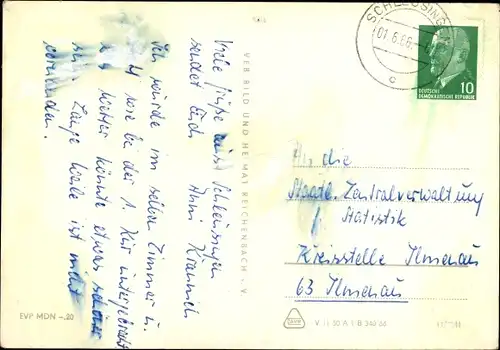 Viele Grüße aus Schleusingen
sendet Euch
Anni Krannich
Ich wurde im selben Zimmer u.
wie bei der 1. Kur untergebracht
Wetter könnte etwas schöner
sein. Lange Weile ist nicht
vorhanden.
VEB BILD UND HEIMAT REICHENBACH i. V.
SCHLEUSINGEN
01.6.66
c
10
DEUTSCHE
DEMOKRATISCHE REPUBLIK
An die
Staatl. Zentralverwaltung
f. Statistik
Kreisstelle Ilmenau
63 Ilmenau
EVP MDN –.20
V 11 50 A 1/B